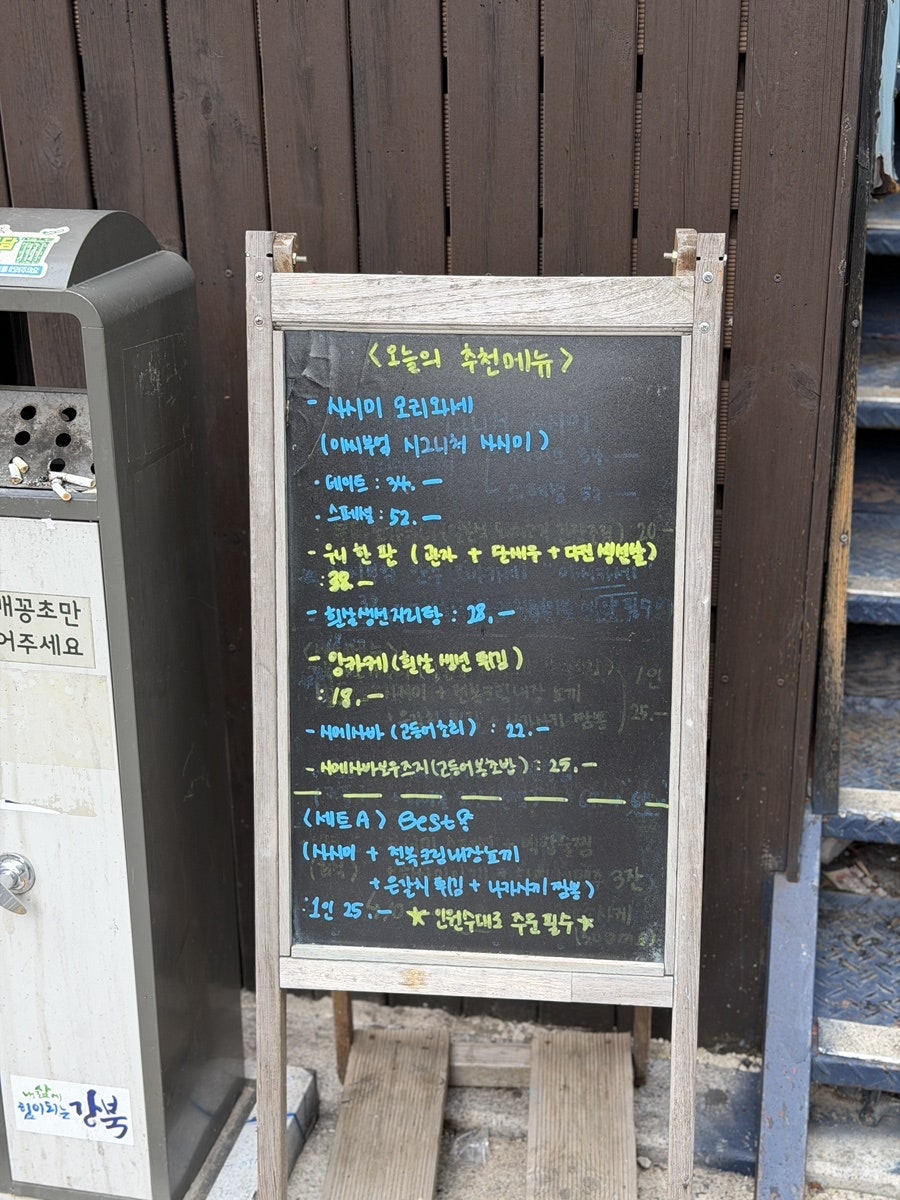 <오늘의 추천메뉴>
- 사시미 모리와세
(이씨부엌 시그니처 사시미)
· 데이트 : 34.—
· 스페셜 : 52.—
- 우니 한 판 (관자 + 단새우 + 다진생선살)
: 38.—
- 흰살생선지리탕 : 28.—
- 앙카케 (흰살 생선 튀김)
: 18.—
- 시메사바 (고등어초회) : 22.—
- 시메사바보우즈시(고등어봉초밥) : 25.—
<세트A> Best
(사시미 + 전복크림내장뇨끼
+ 은갈치 튀김 + 나가사키 짬뽕)
: 1인 25.— ★ 인원수대로 주문 필수 ★
배꽁초만
어주세요
내 삶에
힘이되는 강북